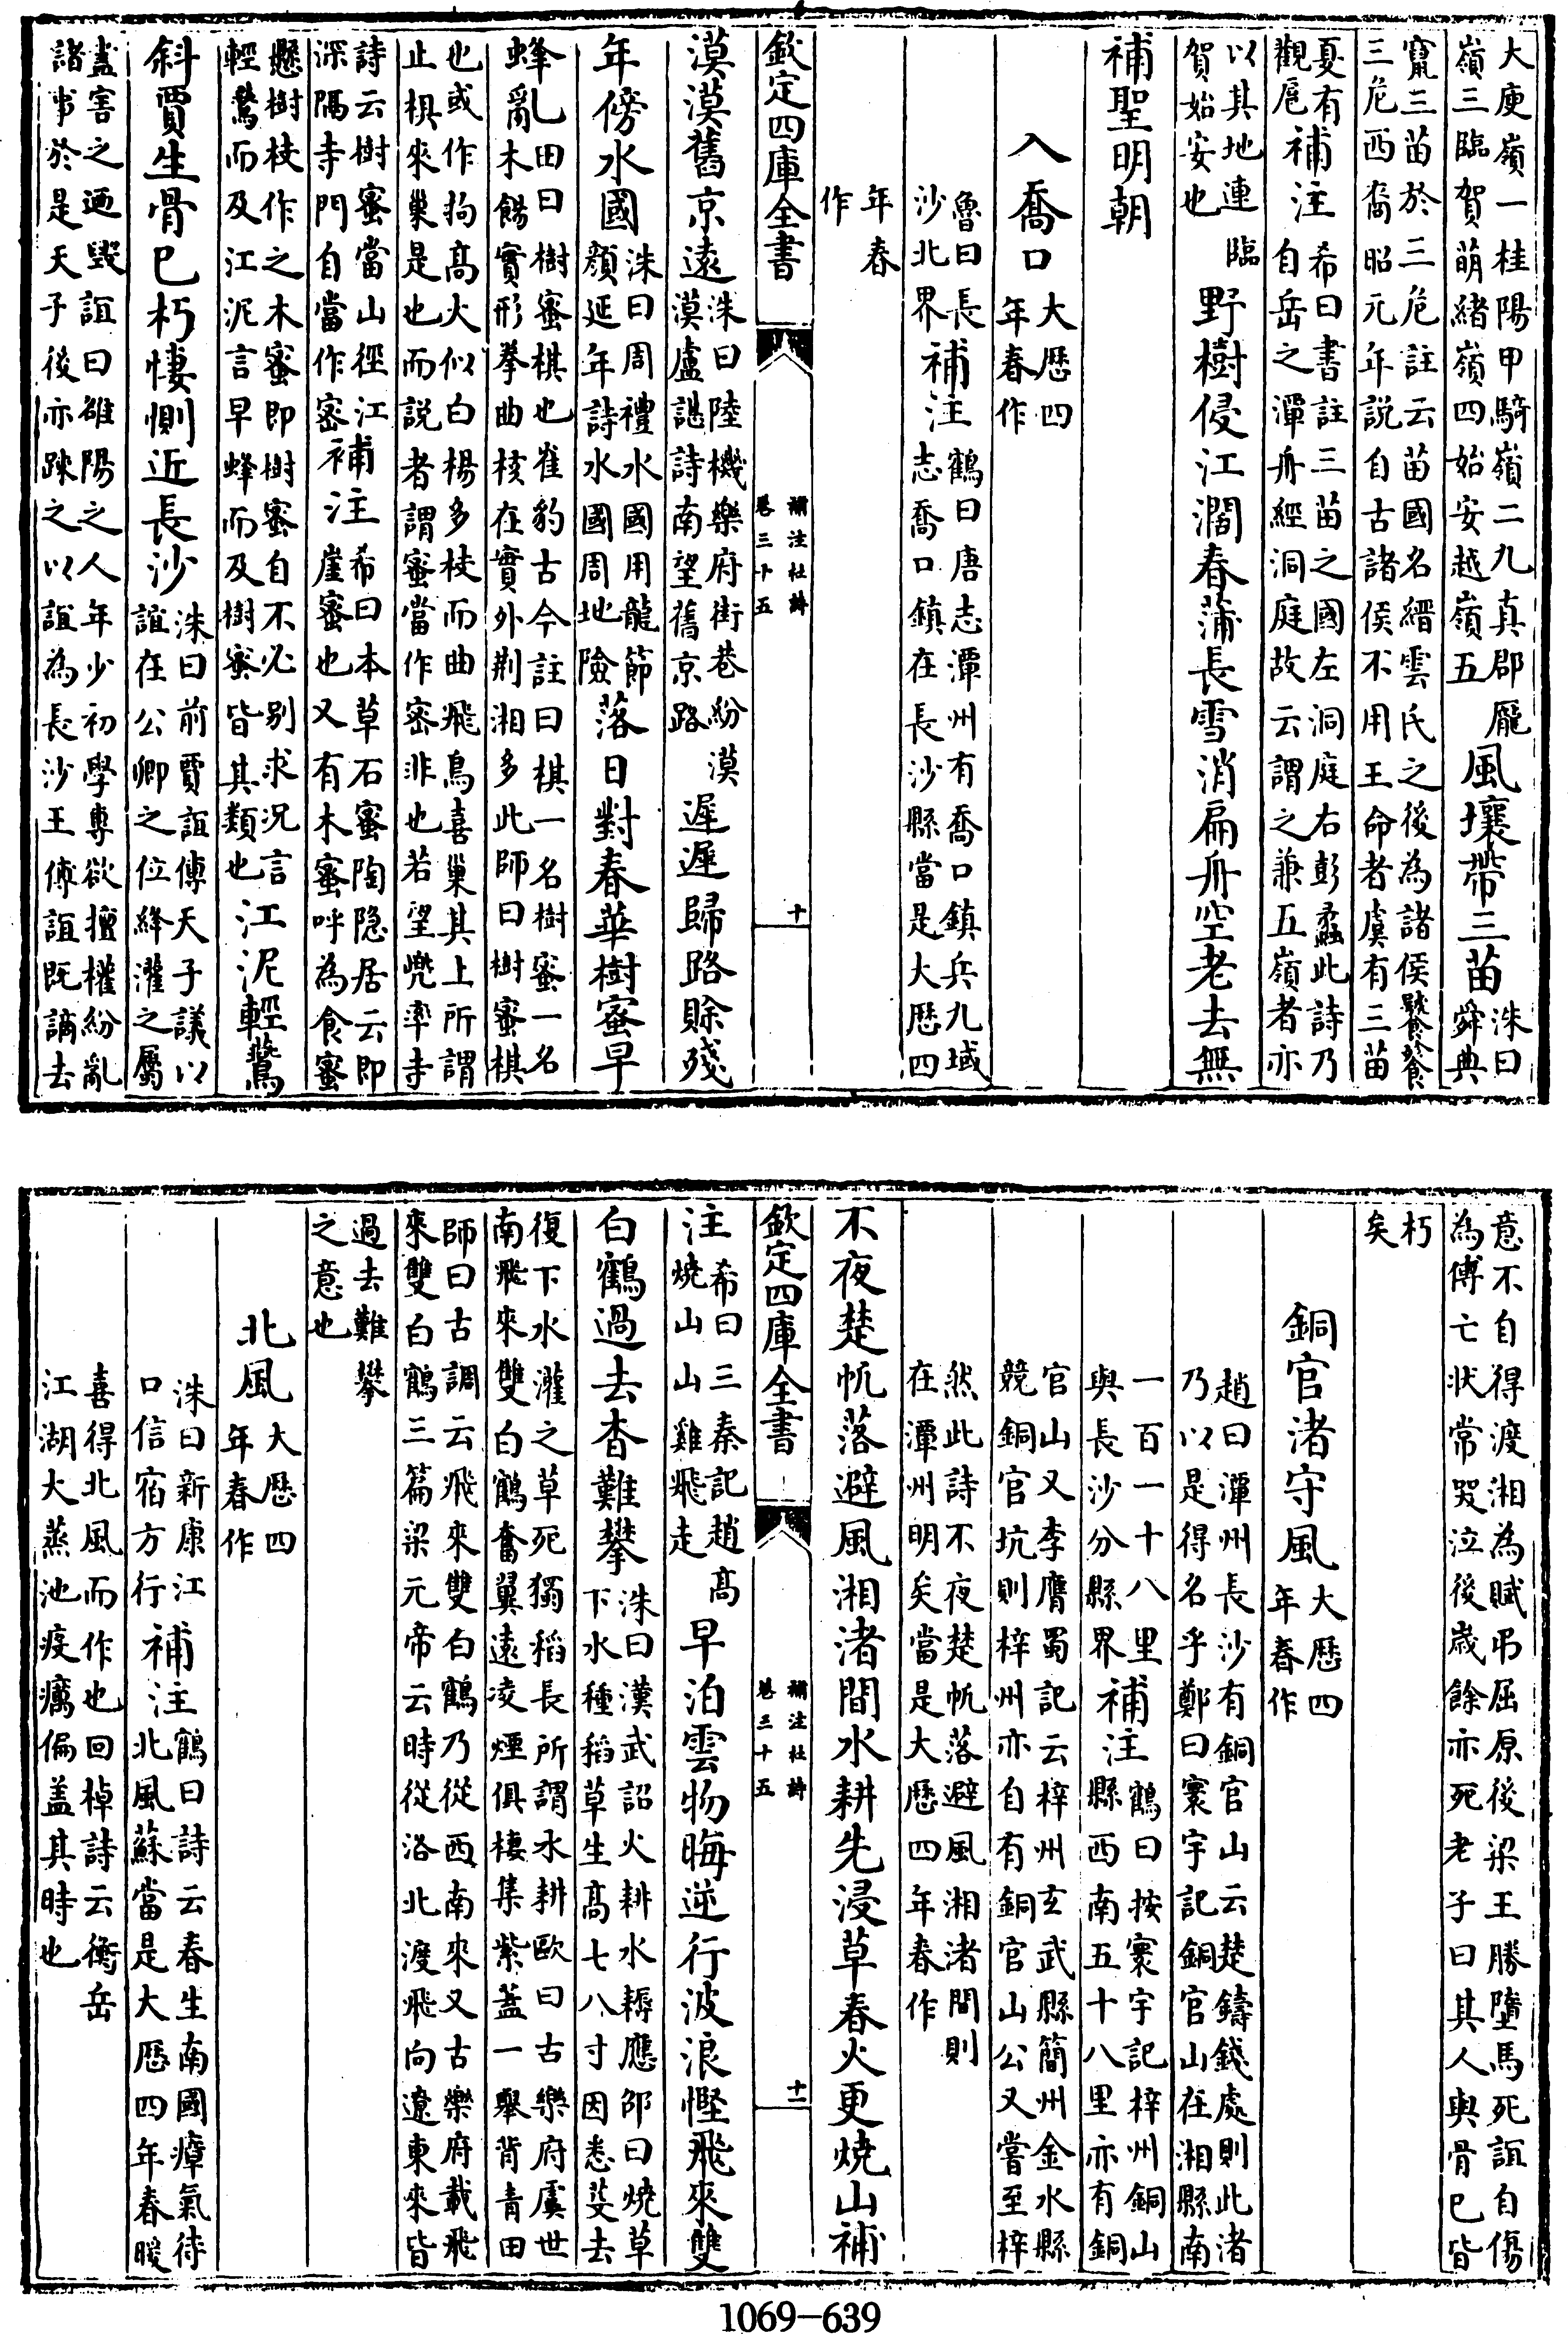 大庾嶺一桂陽甲騎嶺二九真郡龐嶺三臨賀萌緒嶺四始安越嶺五風壤帶三苗洙曰舜典
竄三苗於三危註云苗國名縉雲氏之後為諸侯號饕餮
三危西裔昭元年説自古諸侯不用王命者虞有三苗
夏有觀扈補注希曰書註三苗之國左洞庭右彭蠡此詩乃自岳之潭舟經洞庭故云謂之兼五嶺者亦
以其地連臨賀始安也野樹侵江濶春蒲長雪消扁舟空老去無
補聖明朝
入喬口大厯四年春作
魯曰長沙北界補注鶴曰唐志潭州有喬口鎮兵九域志喬口鎮在長沙縣當是大厯四
年春作
欽定四庫全書
補注杜詩
卷三十五
十
漠漠舊京遠洙曰陸機樂府街巷紛漠漠盧諶詩南望舊京路遲遲歸路賖殘
年傍水國洙曰周禮水國用龍節顔延年詩水國周地險落日對春華樹蜜早
蜂亂田曰樹蜜棋也崔豹古今註曰棋一名樹蜜一名木餳實形拳曲核在實外荆湘多此師曰樹蜜棋
也或作狗髙大似白楊多枝而曲飛鳥喜巢其上所謂
止棋來巢是也而説者謂蜜當作密非也若望兠率寺
詩云樹蜜當山徑江深隔寺門自當作密補注希曰本草石蜜陶隐居云即崖蜜也又有木蜜呼為食蜜
懸樹枝作之木蜜即樹蜜自不必别求况言輕鶩而及江泥言早蜂而及樹蜜皆其類也江泥輕鶩
斜賈生骨已朽悽惻近長沙洙曰前賈誼傳天子議以誼在公卿之位絳灌之屬
盡害之廼毀誼曰雒陽之人年少初學專欲擅權紛亂
諸事於是天子後亦踈之以誼為長沙王傅誼既謫去
意不自得渡湘為賦弔屈原後梁王勝墮馬死誼自傷
為傅亡狀常哭泣後歲餘亦死老子曰其人與骨已皆
朽矣
銅官渚守風大厯四年春作
趙曰潭州長沙有銅官山云楚鑄錢處則此渚
乃以是得名乎鄭曰寰宇記銅官山在湘縣南
一百一十八里與長沙分縣界補注鶴曰按寰宇記梓州銅山縣西南五十八里亦有銅
官山又李膺蜀記云梓州玄武縣簡州金水縣
競銅官坑則梓州亦自有銅官山公又嘗至梓
然此詩不夜楚帆落避風湘渚間則
在潭州明矣當是大厯四年春作
不夜楚帆落避風湘渚間水耕先浸草春火更燒山補
欽定四庫全書
補注杜詩
卷三十五
十一
注希曰三秦記趙髙燒山山雞飛走早泊雲物晦逆行波浪慳飛來雙
白鶴過去杳難攀洙曰漢武詔火耕水耨應邵曰燒草下水種稻草生髙七八寸因悉芟去
復下水灌之草死獨稻長所謂水耕歐曰古樂府虞世
南飛來雙白鶴奮翼遠凌煙俱棲集紫葢一舉背青田
師曰古調云飛來雙白鶴乃從西南來又古樂府載飛
來雙白鶴三篇梁元帝云時從洛北渡飛向遼東來皆
過去難攀之意也
北風大厯四年春作
洙曰新康江口信宿方行補注鶴曰詩云春生南國瘴氣待北風蘇當是大厯四年春暖
喜得北風而作也回棹詩云衡岳
江湖大蒸池疫癘偏盖其時也
1069-639